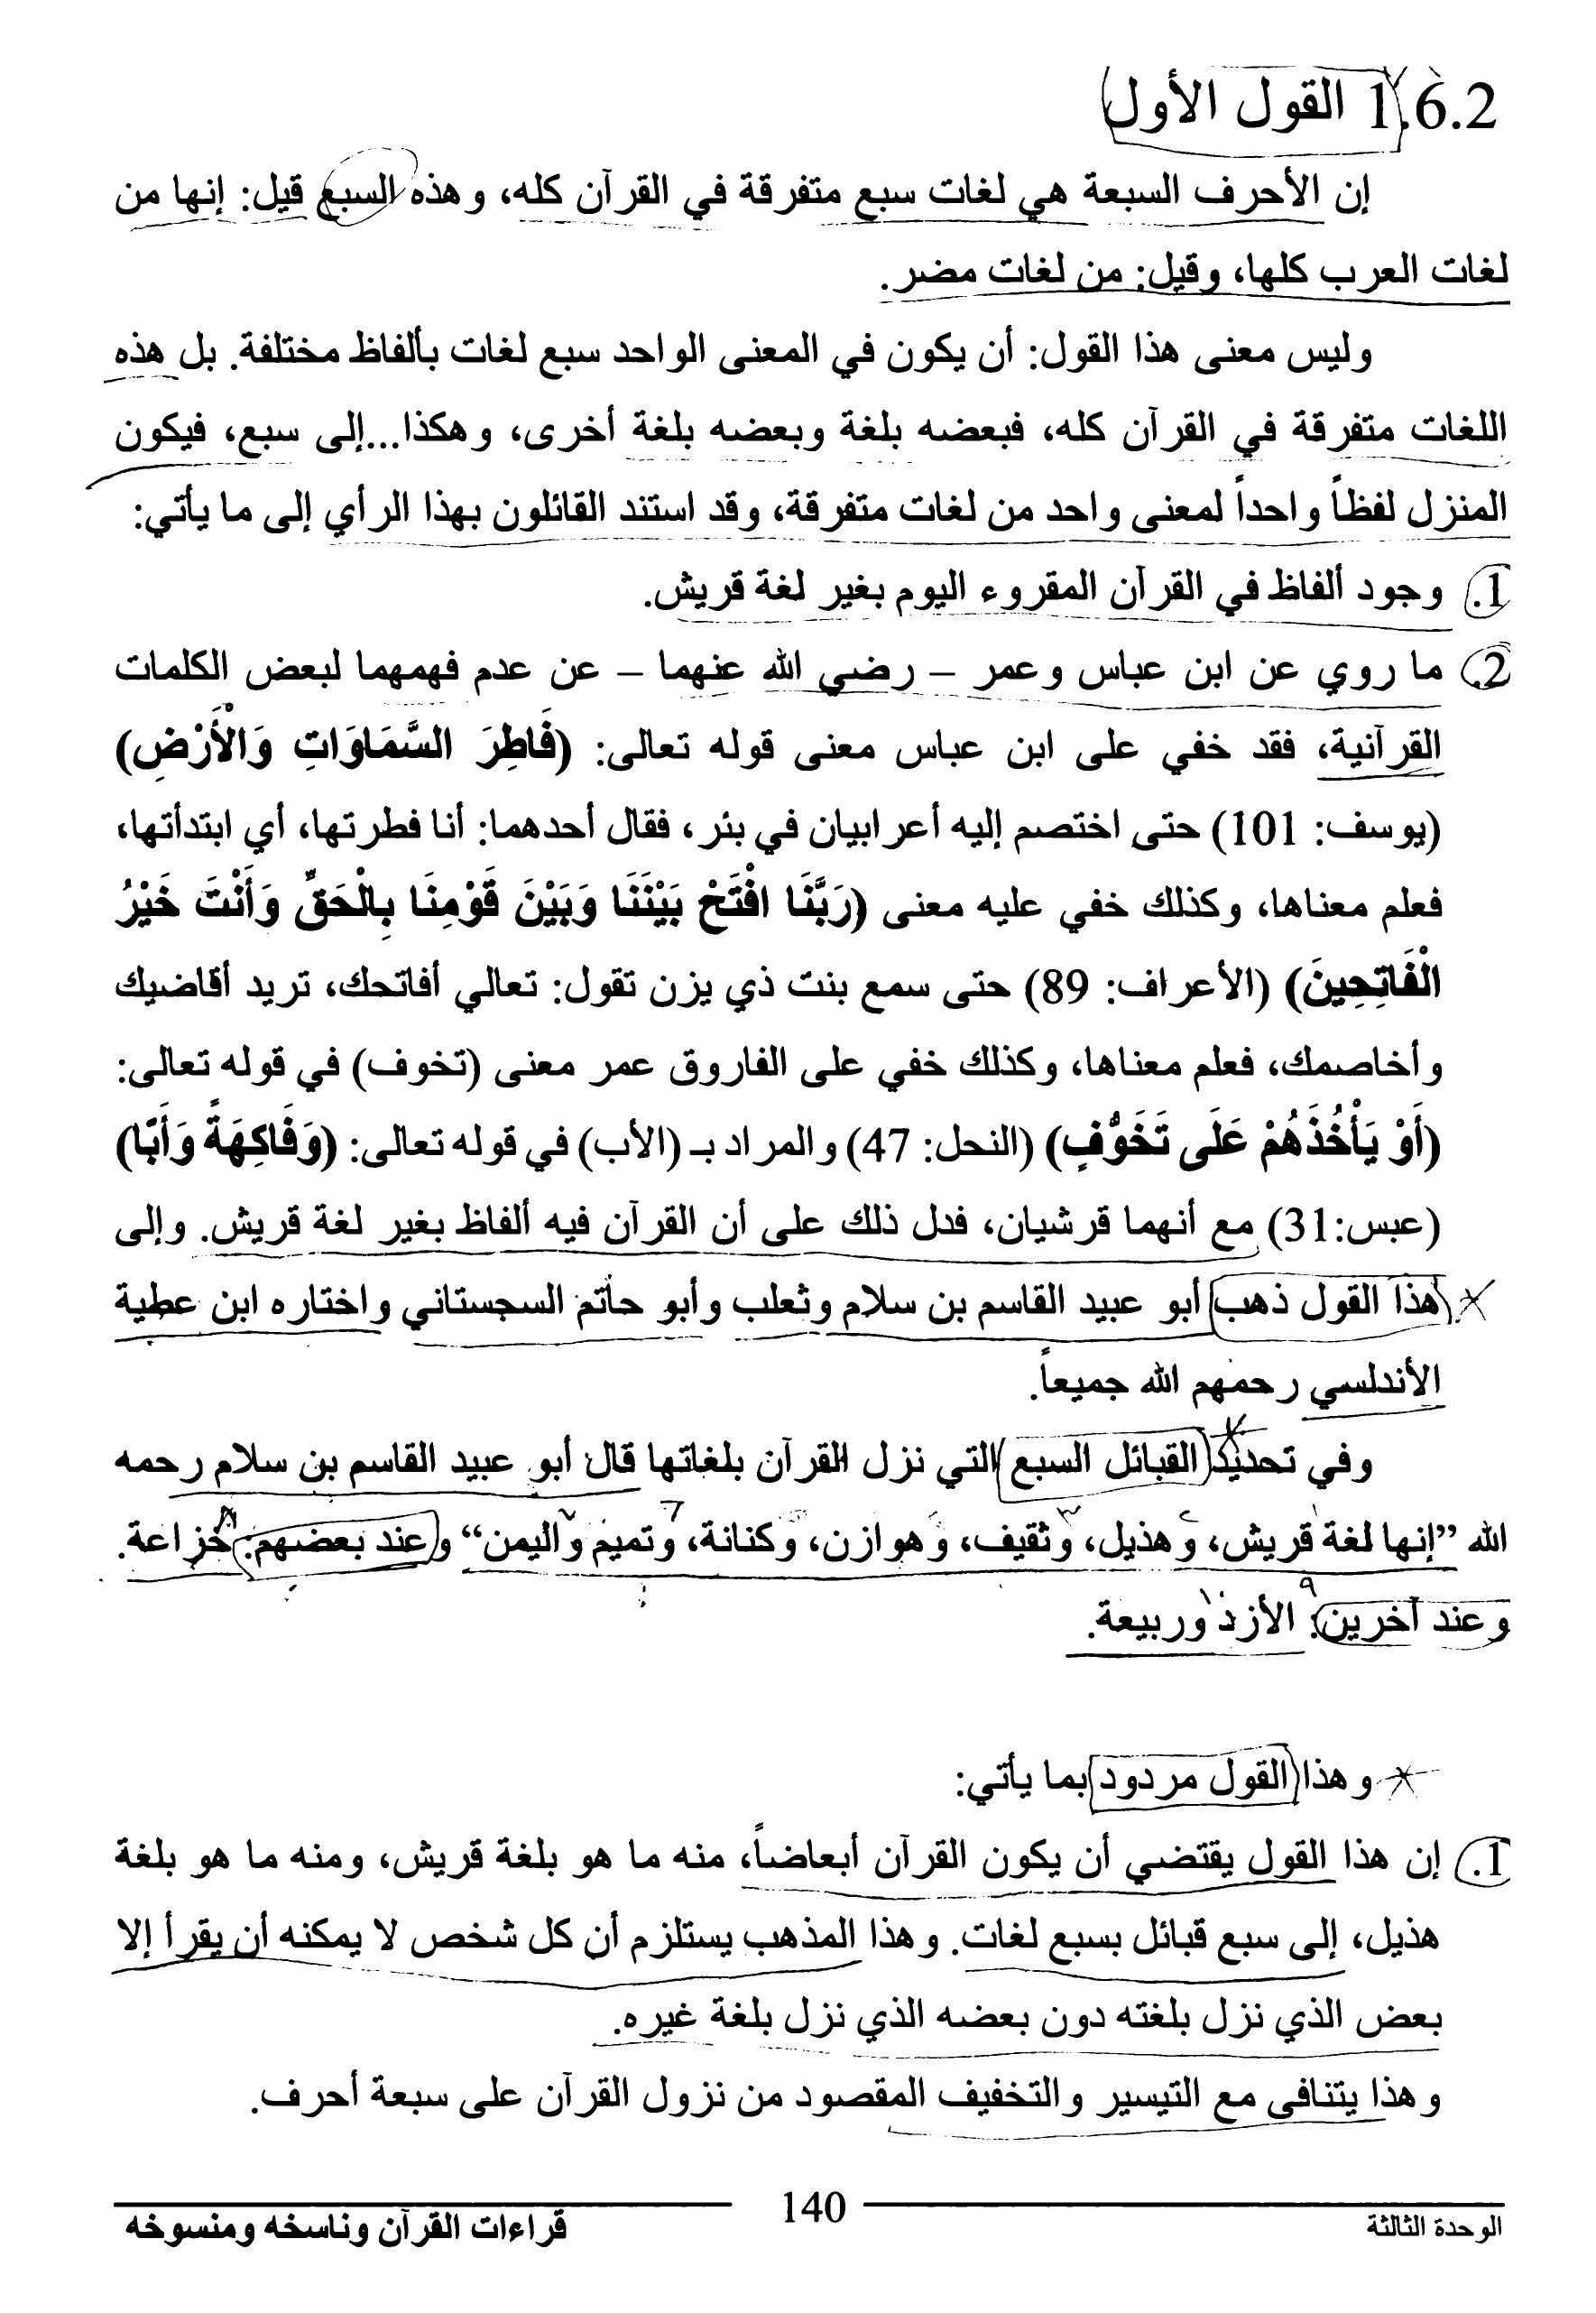 1.6.2 القول الأول
إن الأحرف السبعة هي لغات سبع متفرقة في القرآن كله، وهذه السبع قيل: إنها من
لغات العرب كلها، وقيل: من لغات مضر.
وليس معنى هذا القول: أن يكون في المعنى الواحد سبع لغات بألفاظ مختلفة. بل هذه
اللغات متفرقة في القرآن كله، فبعضه بلغة وبعضه بلغة أخرى، وهكذا...إلى سبع، فيكون
المنزل لفظاً واحداً لمعنى واحد من لغات متفرقة، وقد استند القائلون بهذا الرأي إلى ما يأتي:
1. وجود ألفاظ في القرآن المقروء اليوم بغير لغة قريش.
2. ما روي عن ابن عباس وعمر – رضي الله عنهما – عن عدم فهمهما لبعض الكلمات
القرآنية، فقد خفي على ابن عباس معنى قوله تعالى: (فَاطِرَ السَّمَاوَاتِ وَالْأَرْضِ)
(يوسف: 101) حتى اختصم إليه أعرابيان في بئر، فقال أحدهما: أنا فطرتها، أي ابتدأتها،
فعلم معناها، وكذلك خفي عليه معنى (رَبَّنَا افْتَحْ بَيْنَنَا وَبَيْنَ قَوْمِنَا بِالْحَقِّ وَأَنْتَ خَيْرُ
الْفَاتِحِينَ) (الأعراف: 89) حتى سمع بنت ذي يزن تقول: تعالي أفاتحك، تريد أقاضيك
وأخاصمك، فعلم معناها، وكذلك خفي على الفاروق عمر معنى (تخوف) في قوله تعالى:
(أَوْ يَأْخُذَهُمْ عَلَى تَخَوُّفٍ) (النحل: 47) والمراد بـ (الأب) في قوله تعالى: (وَفَاكِهَةً وَأَبًّا)
(عبس:31) مع أنهما قرشيان، فدل ذلك على أن القرآن فيه ألفاظ بغير لغة قريش. وإلى
هذا القول ذهب أبو عبيد القاسم بن سلام وثعلب وأبو حاتم السجستاني واختاره ابن عطية
الأندلسي رحمهم الله جميعاً.
وفي تحديد القبائل السبع التي نزل القرآن بلغاتها قال أبو عبيد القاسم بن سلام رحمه
الله "إنها لغة قريش، وهذيل، وثقيف، وهوازن، وكنانة، وتميم واليمن" وعند بعضهم: خزاعة.
وعند آخرين: الأزد وربيعة.
وهذا القول مردود بما يأتي:
1. إن هذا القول يقتضي أن يكون القرآن أبعاضاً، منه ما هو بلغة قريش، ومنه ما هو بلغة
هذيل، إلى سبع قبائل بسبع لغات. وهذا المذهب يستلزم أن كل شخص لا يمكنه أن يقرأ إلا
بعض الذي نزل بلغته دون بعضه الذي نزل بلغة غيره.
وهذا يتنافى مع التيسير والتخفيف المقصود من نزول القرآن على سبعة أحرف.
الوحدة الثالثة 140 قراءات القرآن وناسخه ومنسوخه